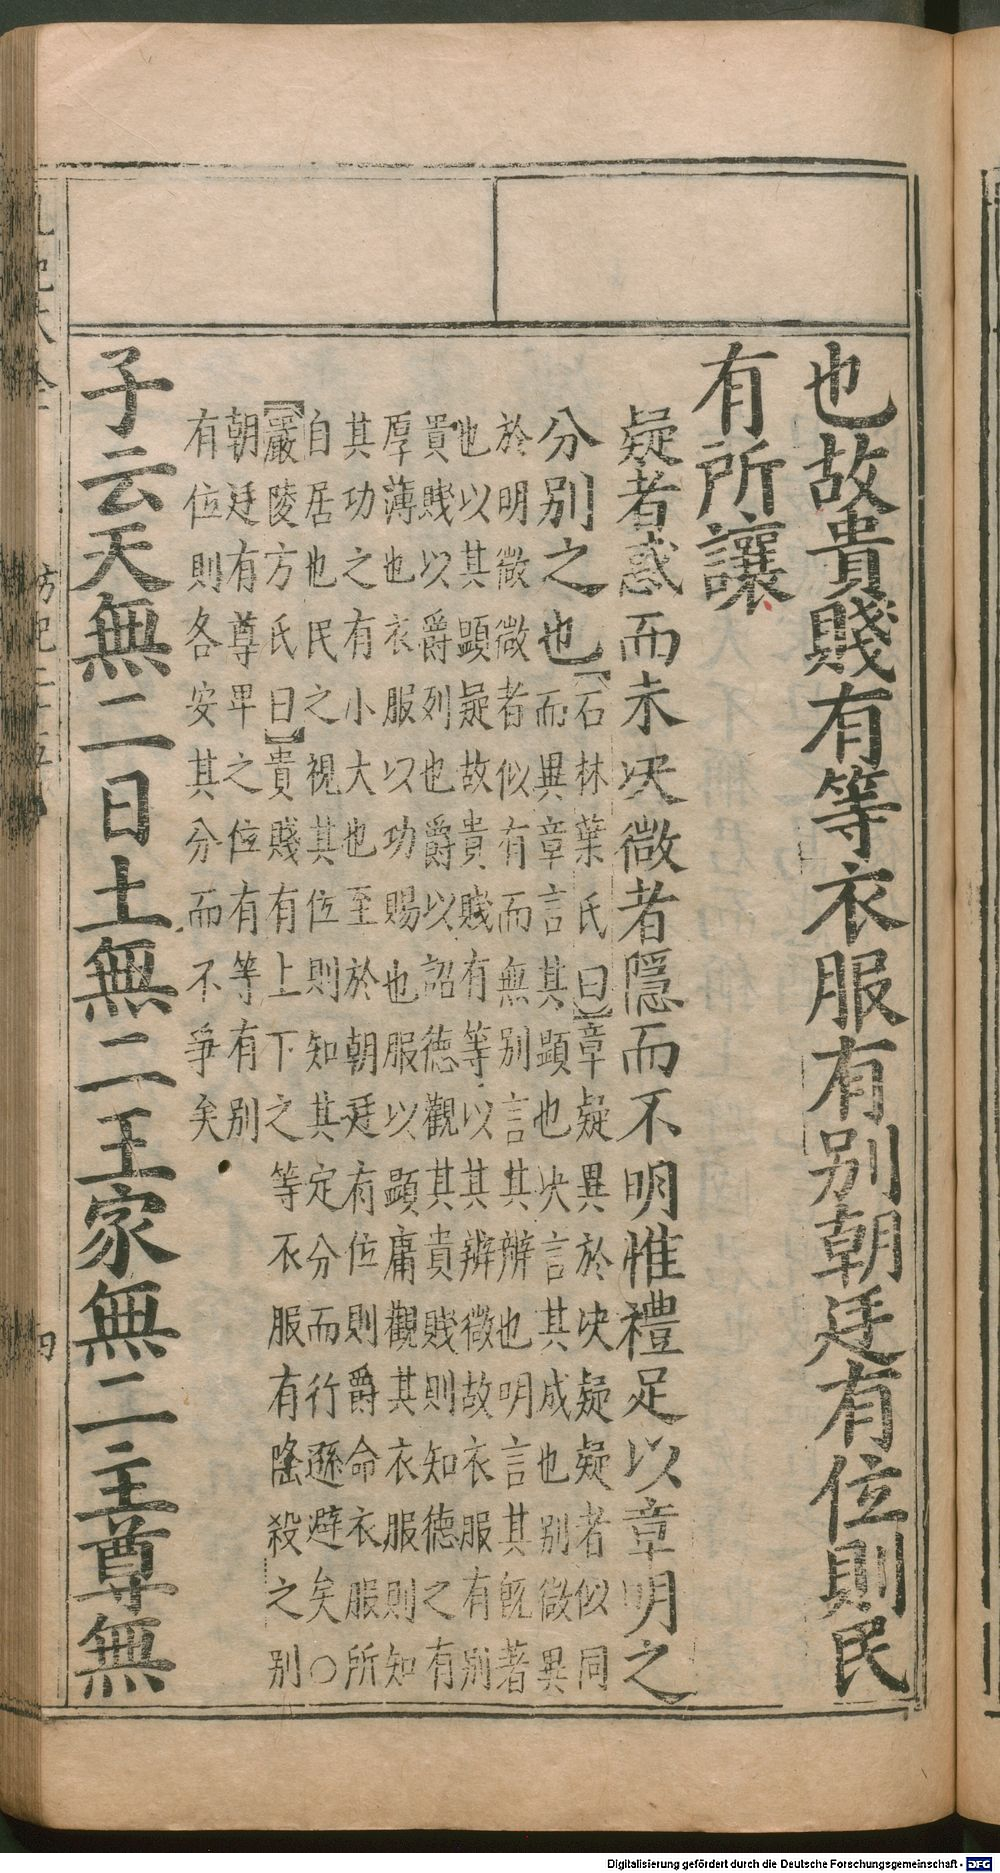 也故貴賤有等衣服有別朝廷有位則民
有所讓
疑者惑而未決微者隱而不明惟禮足以章明之
分別之也【石林葉氏曰】章疑異於決疑疑者似同
而異章言其顯也決言其成也別微異
於明微微者似有而無別言其辨也明言其旣著
也以其顯疑故貴賤有等以其辨微故衣服有別
貴賤以爵列也爵以詔德觀其貴賤則知德之有
厚薄也衣服以功賜也服以顯庸觀其衣服則知
其功之有小大也至於朝廷有位則爵命衣服所
自居也民之視其位則知其定分而行遜避矣○
【嚴陵方氏曰】貴賤有上下之等衣服有隆殺之別
朝廷有尊卑之位有等有別
有位則各安其分而不爭矣
子云天無二日土無二王家無二主尊無
坊記二十五
四
Digitalisierung gefördert durch die Deutsche Forschungsgemeinschaft - DFG